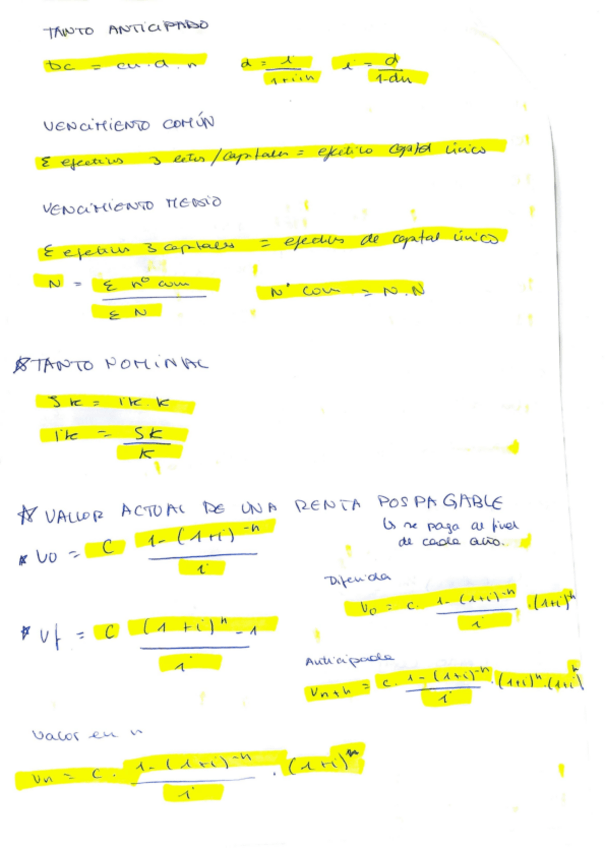 TANTO ANTICIPADO
Dc = Cn.d.n d = i / 1+i.n i = d / 1-dn
VENCIMIENTO COMÚN
Σ efectivos 3 letras/capitales = efectivo capital único
VENCIMIENTO MEDIO
Σ efectivos 3 capitales = efectivos de capital único
N = Σ nº com / Σ N Nº com = N.N
☆TANTO NOMINAL
Jk = ik.k
ik = Jk / k
☆ VALLOR ACTUAL DE UNA RENTA POSPAGABLE
↳ se paga al final de cada año.
* V0 = C 1-(1+i)^-n / i
Diferida
V0 = c. 1-(1+i)^-n / i .(1+i)^h
* Vf = C (1+i)^n - 1 / i
Anticipada
Vn+h = c. 1-(1+i)^-n / i .(1+i)^n.(1+i)^h
Valor en n
Vn = C. 1-(1+i)^-n / i . (1+i)^n